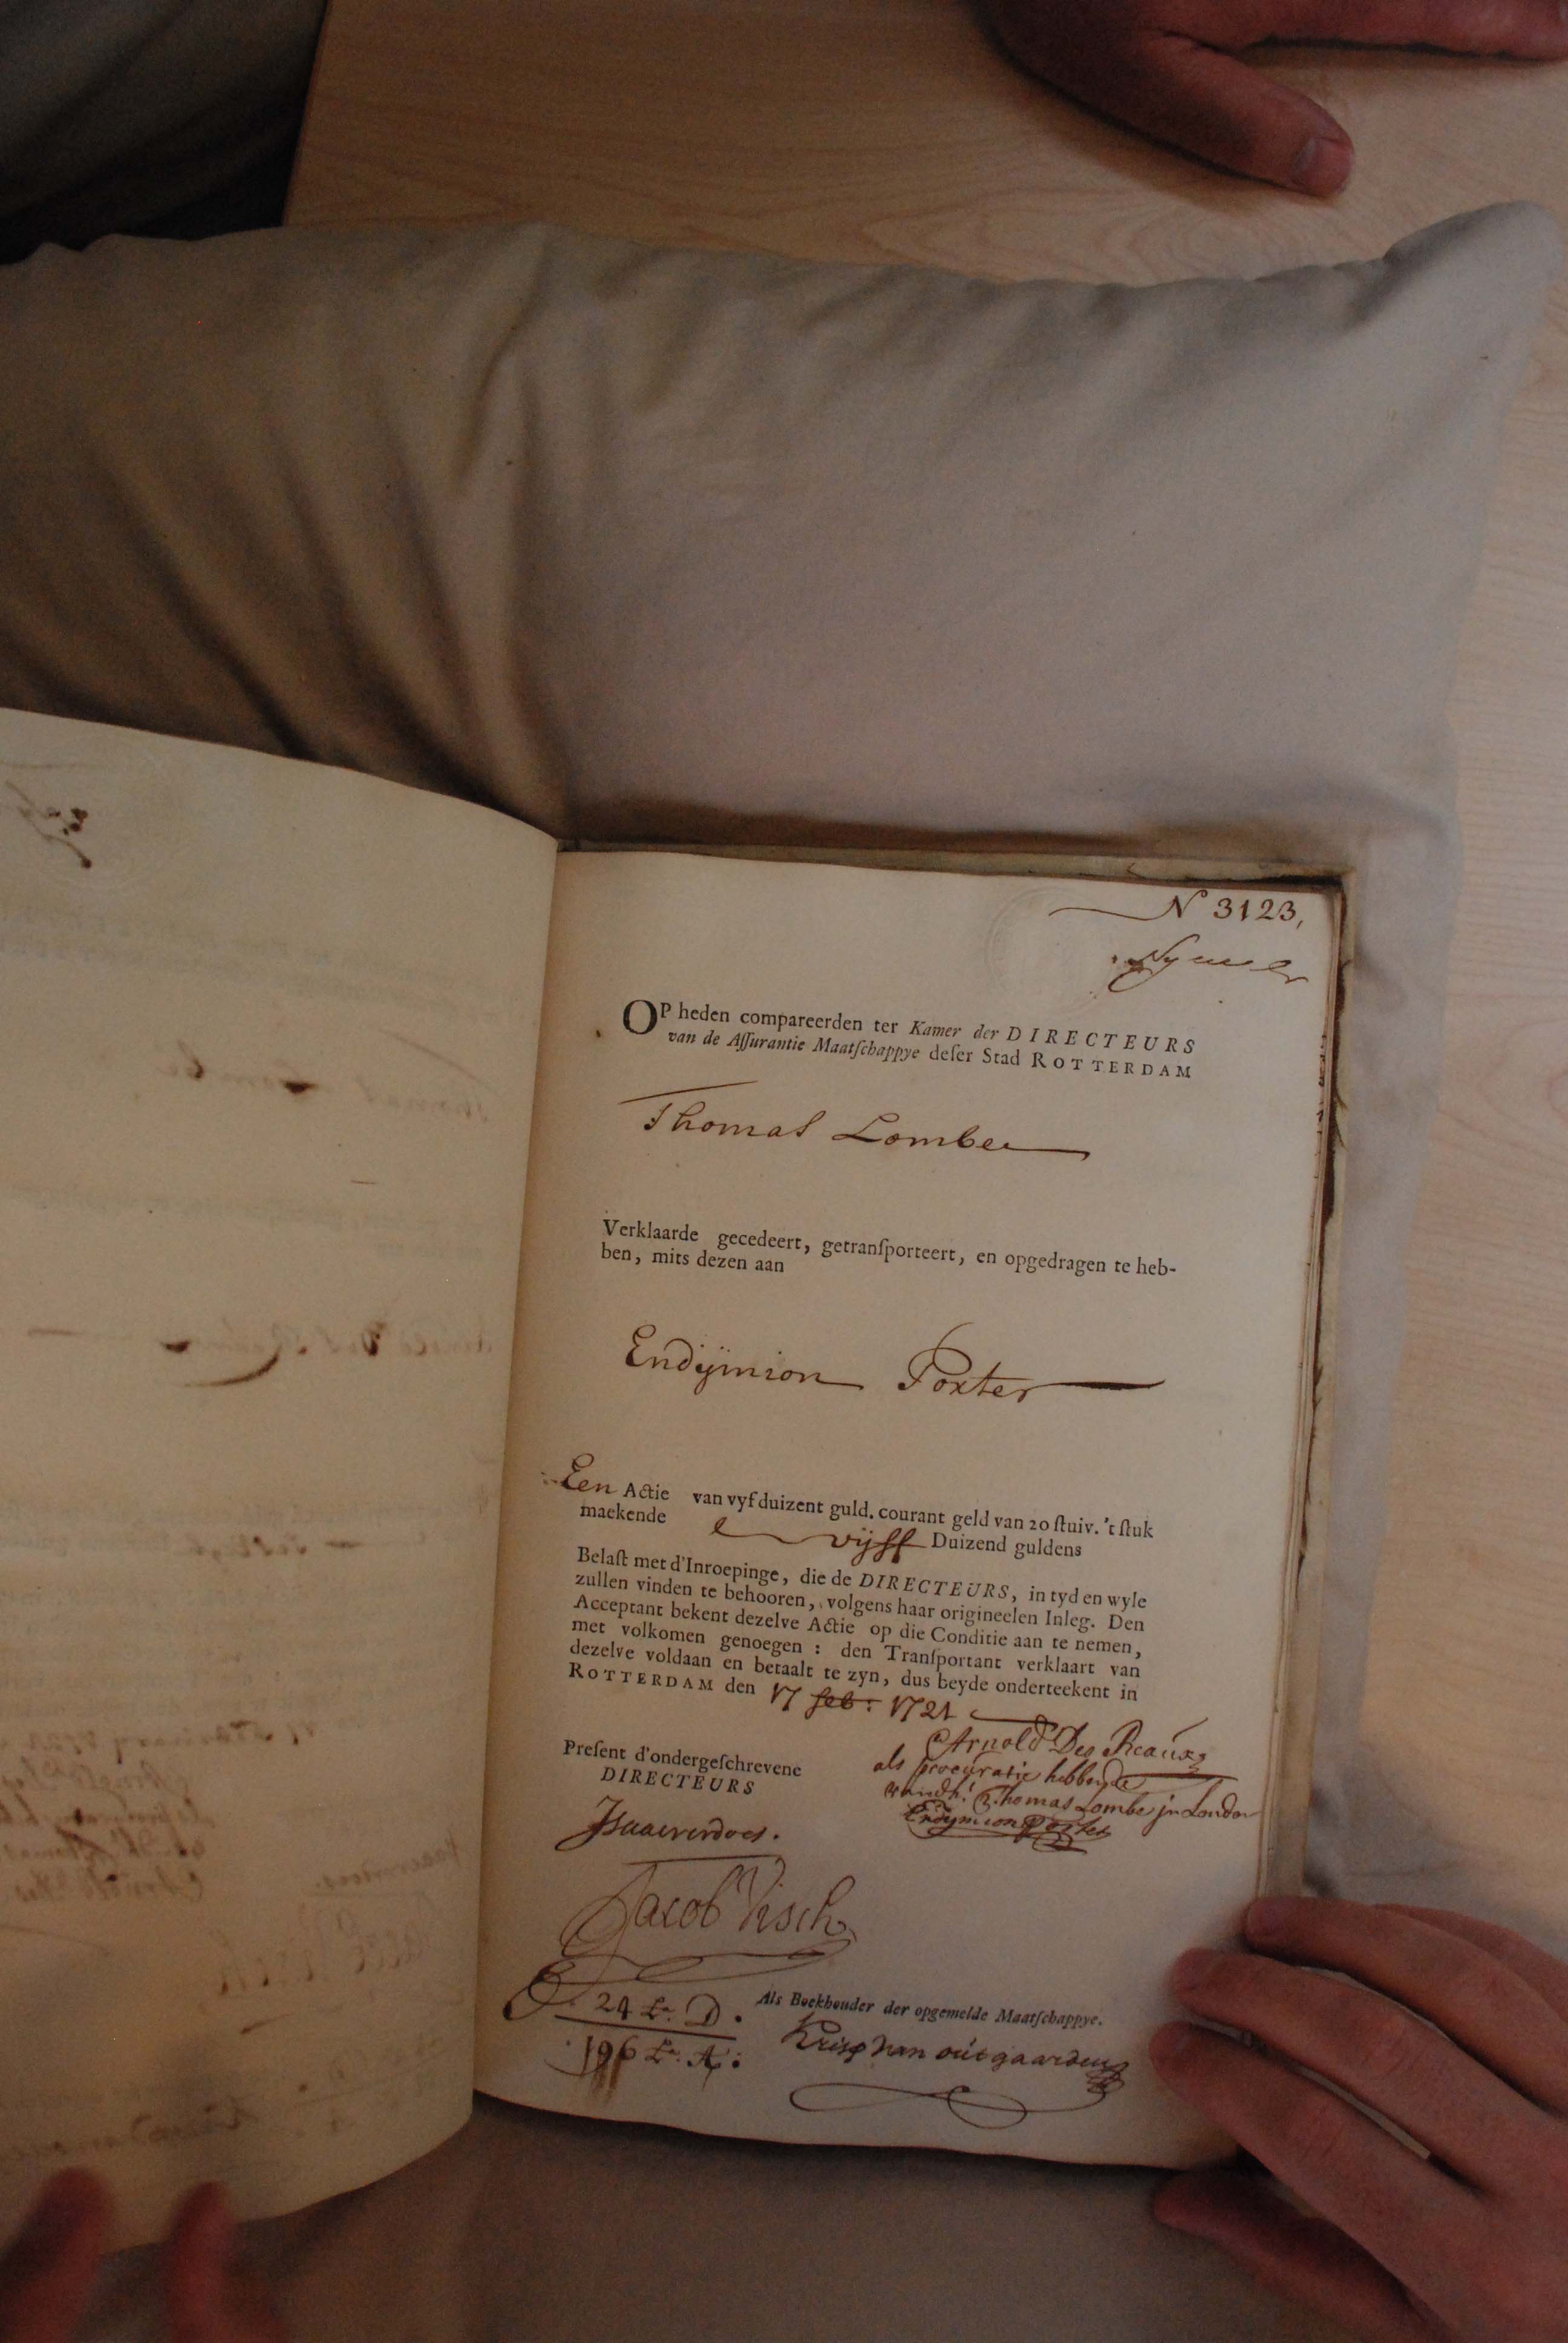 N 3123,
OP heden compareerden ter Kamer der DIRECTEURS
van de Aſſurantie Maatſchappye deſer Stad ROTTERDAM
Thomas Lombe
Verklaarde gecedeert, getranſporteert, en opgedragen te heb-
ben, mits dezen aan
Endÿmion Porter
Een Actie van vyf duizent guld. courant geld van 20 ſtuiv. 't ſtuk
maekende vijff Duizend guldens
Belaſt met d'Inroepinge, die de DIRECTEURS, in tyd en wyle
zullen vinden te behooren, volgens haar origineelen Inleg. Den
Acceptant bekent dezelve Actie op die Conditie aan te nemen,
met volkomen genoegen : den Tranſportant verklaart van
dezelve voldaan en betaalt te zyn, dus beyde onderteekent in
ROTTERDAM den 17 feb: 1721
Arnold Des Reaux
als procuratie hebbende
vandh.r Thomas Lombe jn London
Endymion Porter
Preſent d'ondergeſchrevene
DIRECTEURS
Isaacverdoes.
Jacob Visch
24 L.a D.
196 L.a A:
Als Boekhouder der opgemelde Maatſchappye.